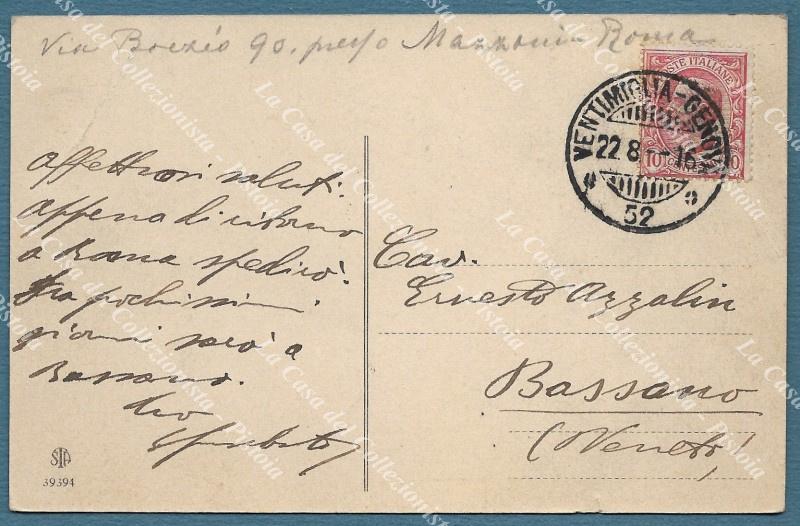 Via Boezio 90. presso Mazzoni Roma
POSTE ITALIANE
10
VENTIMIGLIA - GENOVA
22 8 - 16
52
Affettuosi saluti.
Appena di ritorno
a Roma spedirò.
Fra pochissimi
giorni sarò a
Bassano.
tuo
Cav.
Ernesto Azzalin
Bassano
(Veneto)
STA
39394
La Casa del Collezionista - Pistoia